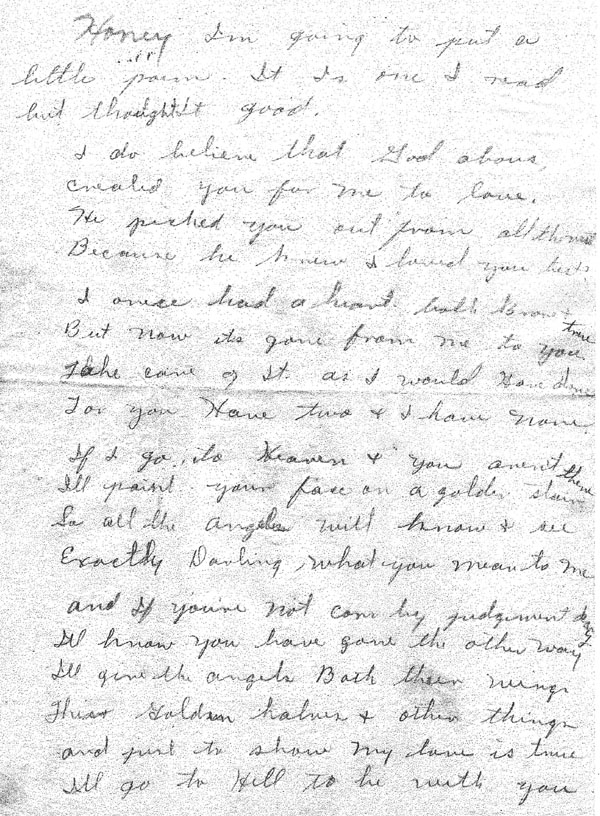 Honey I'm going to put a
little poem. It Is one I read
but thought It good.
I do believe that God above,
created you for me to love.
He picked you out from all
Because he knew I loved you best
I once had a heart both &
true
But now its gone from me to you
Take care of It. as I would Have done
For you Have two & I have none.
If I go to Heaven & you arent there
Ill paint your face on a golden
So all the angels will know & see
Exactly Darling, what you mean to me
and If you're not com by judgement day
Ill know you have gone the other way
Ill give the angels Back their wings
Golden & other things
and just to show my love is true
Ill go to Hell to be with you.